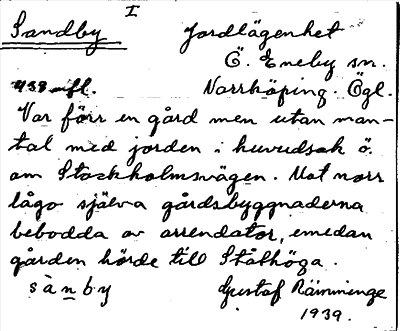 I
Sandby Jordlägenhet
Ö. Eneby sn.
fl. Norrköping. Ögl.
Var förr en gård men utan man-
tal med jorden i huvudsak ö.
om Stockholmsvägen. Mot norr
lågo själva gårdsbyggnaderna
bebodda av arrendator, emedan
gården hörde till Stålhöga.
sànby Gustaf Rämminge
1939.